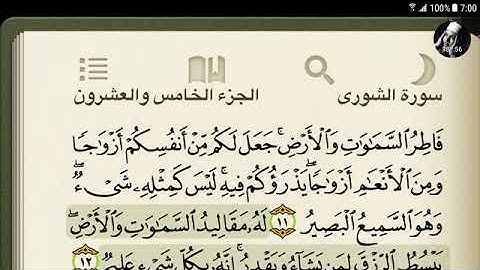 100% 7:00
سورة الشورى الجزء الخامس والعشرون
فَاطِرُ السَّمَٰوَٰتِ وَالْأَرْضِ ۚ جَعَلَ لَكُم مِّنْ أَنفُسِكُمْ أَزْوَٰجًا
وَمِنَ الْأَنْعَٰمِ أَزْوَٰجًا ۖ يَذْرَؤُكُمْ فِيهِ ۚ لَيْسَ كَمِثْلِهِۦ شَىْءٌ ۖ
وَهُوَ السَّمِيعُ الْبَصِيرُ ١١ لَهُۥ مَقَالِيدُ السَّمَٰوَٰتِ وَالْأَرْضِ ۖ
يَبْسُطُ الرِّزْقَ لِمَن يَشَآءُ وَيَقْدِرُ ۚ إِنَّهُۥ بِكُلِّ شَىْءٍ عَلِيمٌ ١٢